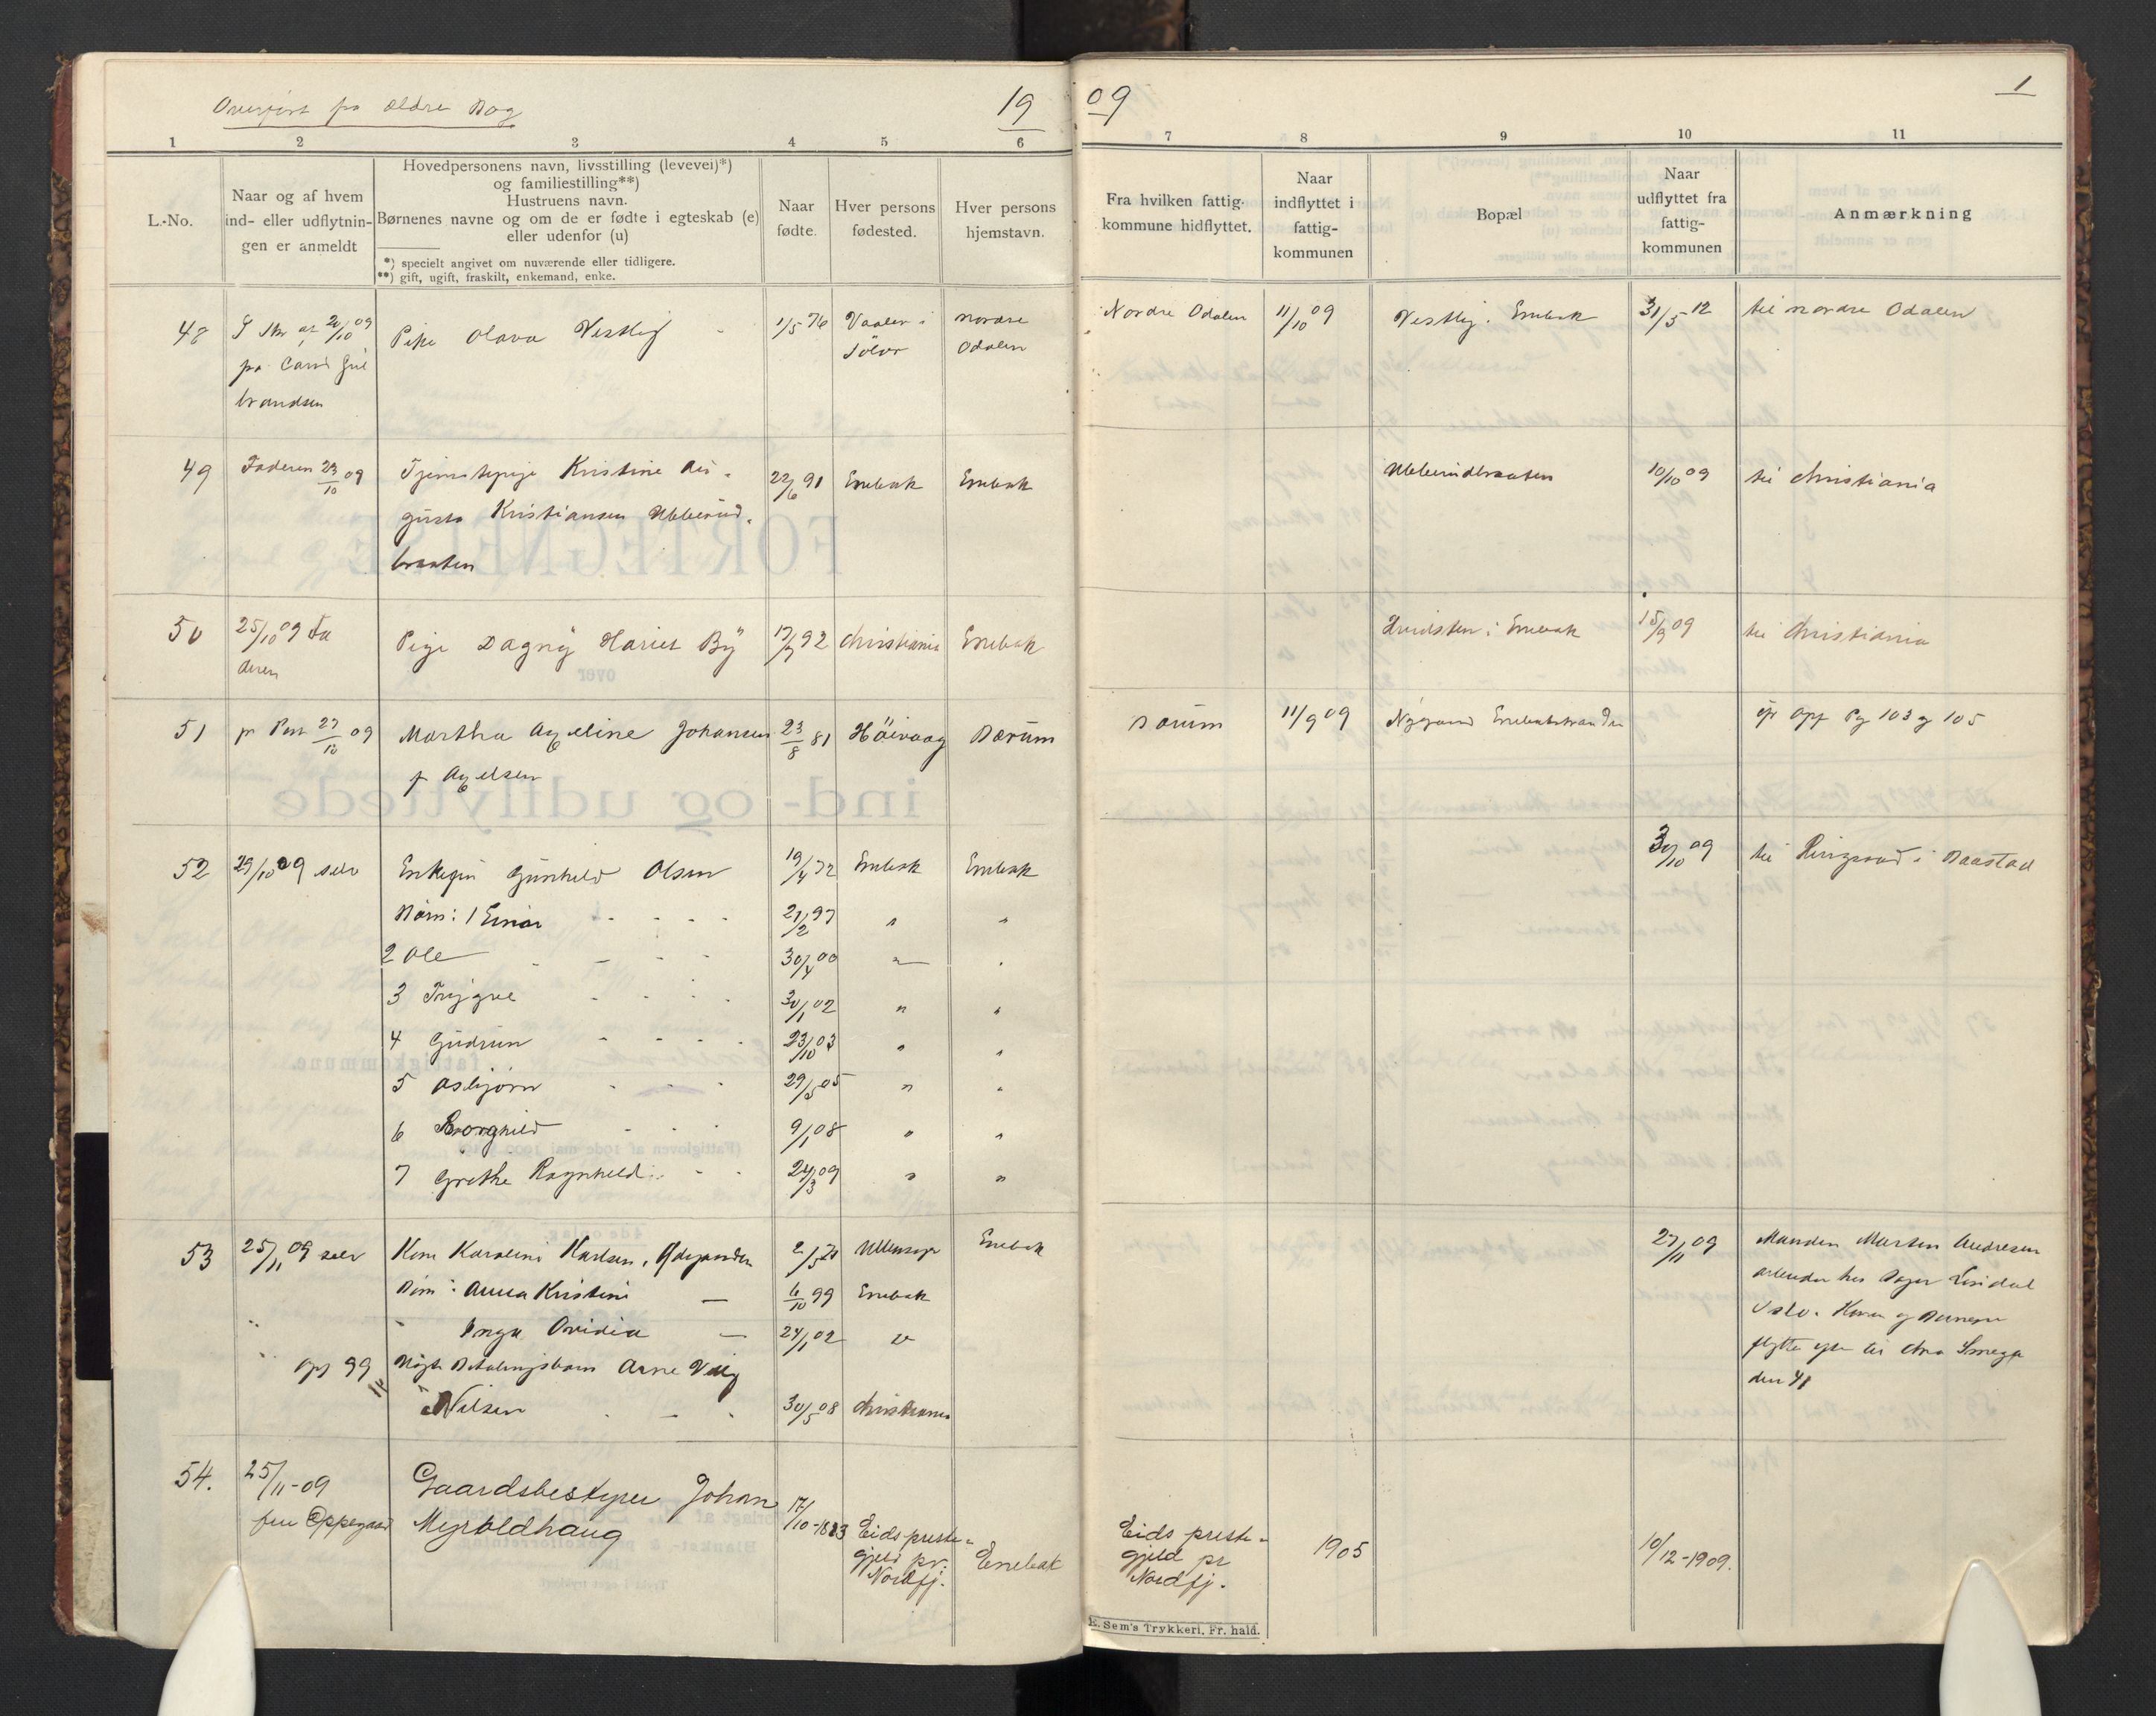 Overført fra ældre Bog
19
1 2 3 4 5 6
L.-No.
Naar og af hvem
ind- eller udflytnin-
gen er anmeldt
Hovedpersonens navn, livsstilling (levevei)*)
og familiestilling**)
Hustruens navn.
Børnenes navne og om de er fødte i egteskab (e)
eller udenfor (u)
*) specielt angivet om nuværende eller tidligere.
**) gift, ugift, fraskilt, enkemand, enke.
Naar
fødte.
Hver persons
fødested.
Hver persons
hjemstavn.
48 20/10 09 Pike Olava Vestlig 1/5 76 Vaaler i nordre
Solør Odalen
brandsen
49 Faderen 23/10 09 Tjenestepige Kristine Au-
gusta Kristiansen Ubberud-
braaten
22/6 91 Enebak Enebak
50 25/10 09 Fa
deren
Pige Dagny Hariet By 17/7 92 Christiania Enebak
51 pr Post 27/10 09 Martha Axeline Johansen 23/8 81 Høivaag Bærum
f Axelsen
52 29/10 09 selv Enkefru Gunhild Olsen 19/4 72 Enebak Enebak
Børn: 1 Einar 21/2 97 " "
2 Ole 30/4 00 " "
3 Trygve 30/1 02 " "
4 Gudrun 23/10 03 " "
5 Asbjørn 29/5 05 " "
6 Borghild 9/1 08 " "
7 Grethe Ragnhild 24/3 09 " "
53 25/11 09 selv Kone Karoline Karlsen, Ødegaarden Ullensaker Enebak
Børn: Anna Kristine — 6/10 99 Enebak
" Inga Ovidia — 24/1 02 "
99 Betalingsbarn Arne
Nilsen 30/5 08 Christiania
54. 25/11-09
Oppegaard
Gaardsbestyrer Johan
Myroldhaug
17/10-1883 Eids preste-
gjeld pr.
Nordfj.
Enebak
09
1
7 8 9 10 11
Fra hvilken fattig-
kommune hidflyttet.
Naar
indflyttet i
fattig-
kommunen
Bopæl
Naar
udflyttet fra
fattig-
kommunen
Anmærkning
Nordre Odalen 11/10 09 Vestlig i Enebak 31/5 12 til nordre Odalen
Ubberudbraaten 10/10 09 til Christiania
Hvidsten i Enebak 15/9 09 til Christiania
Bærum 11/9 09 Nygaard Enebak Opg Pg 103 g 105
30/10 09 til Ringvold i Baastad
27/11 09 Manden Marten Andresen
arbeider hos
Oslo. Konen og Børnene
flytter
den
Eids preste-
gjeld pr
Nordfj.
1905 10/12-1909.
E. Sem's Trykkeri, Fr. hald.